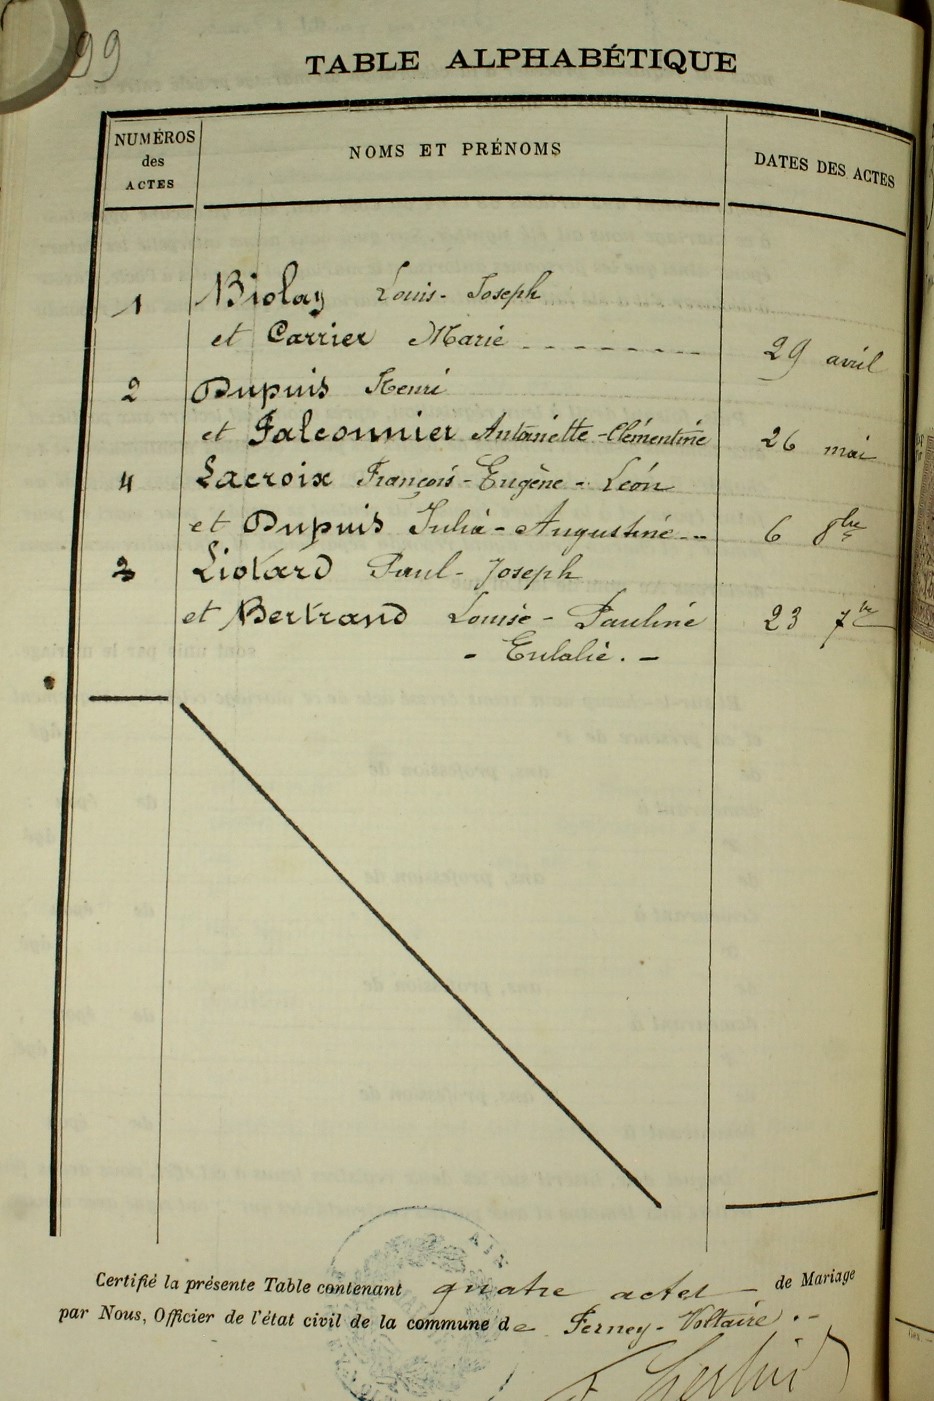 99
TABLE ALPHABÉTIQUE
NUMÉROS des ACTES
NOMS ET PRÉNOMS
DATES DES ACTES
1 Biolay Louis-Joseph
et Carrier Marie 29 avril
2 Dupuis Henri
et Falconnier Antoinette-Clémentine 26 mai
4 Lacroix François-Eugène-Léon
et Dupuis Julia-Augustine 6 8bre
3 Liotard Paul-Joseph
et Bertrand Louise-Pauline 23 7bre
- Eulalie. -
Certifié la présente Table contenant quatre actes de Mariage
par Nous, Officier de l'état civil de la commune de Ferney-Voltaire.